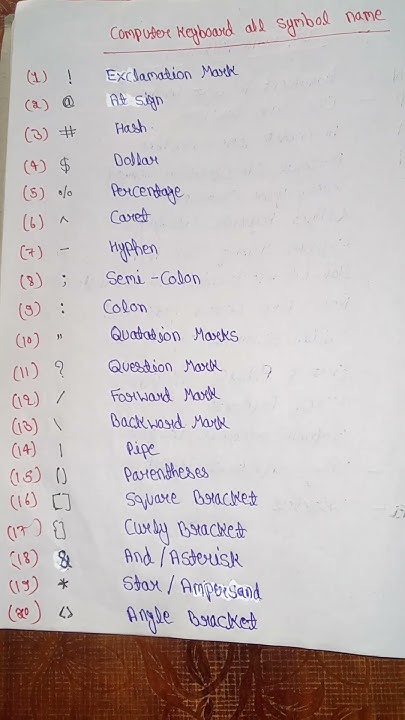 Computer Keyboard all Symbol name
(1) ! Exclamation Mark
(2) @ At sign
(3) # Hash
(4) $ Dollar
(5) % Percentage
(6) ^ Caret
(7) - Hyphen
(8) ; Semi-Colon
(9) : Colon
(10) " Quatation Marks
(11) ? Question Mark
(12) / Forward Mark
(13) \ Backward Mark
(14) | Pipe
(15) () Parentheses
(16) [] Square Bracket
(17) {} Curly Bracket
(18) & And / Asterisk
(19) * Star / Ampersand
(20) <> Angle Bracket